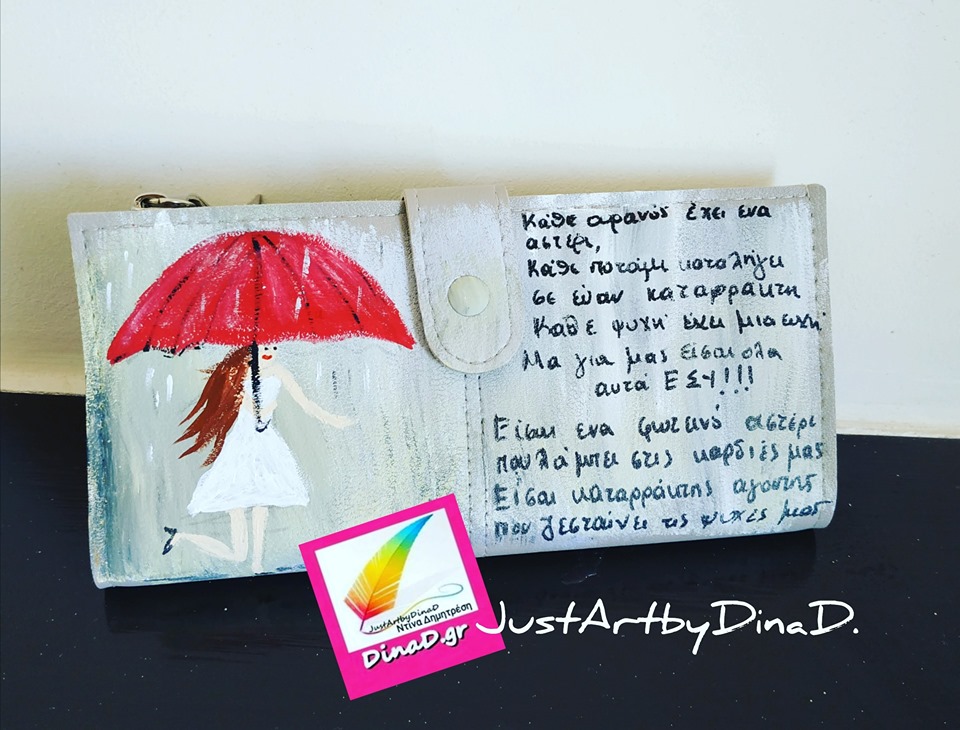 Κάθε ουρανός έχει ένα
αστέρι,
Κάθε ποτάμι καταλήγει
σε έναν καταρράκτη
Κάθε ψυχή έχει μια ευχή
Μα για μας είσαι όλα
αυτά ΕΣΥ!!!
Είσαι ένα φωτεινό αστέρι
που λάμπει στις καρδιές μας
Είσαι καταρράκτης αγάπης
που ζεσταίνει τις ψυχές μας
JustArtbyDinaD
Ντίνα Δημητρέση
DinaD.gr
JustArtbyDinaD.